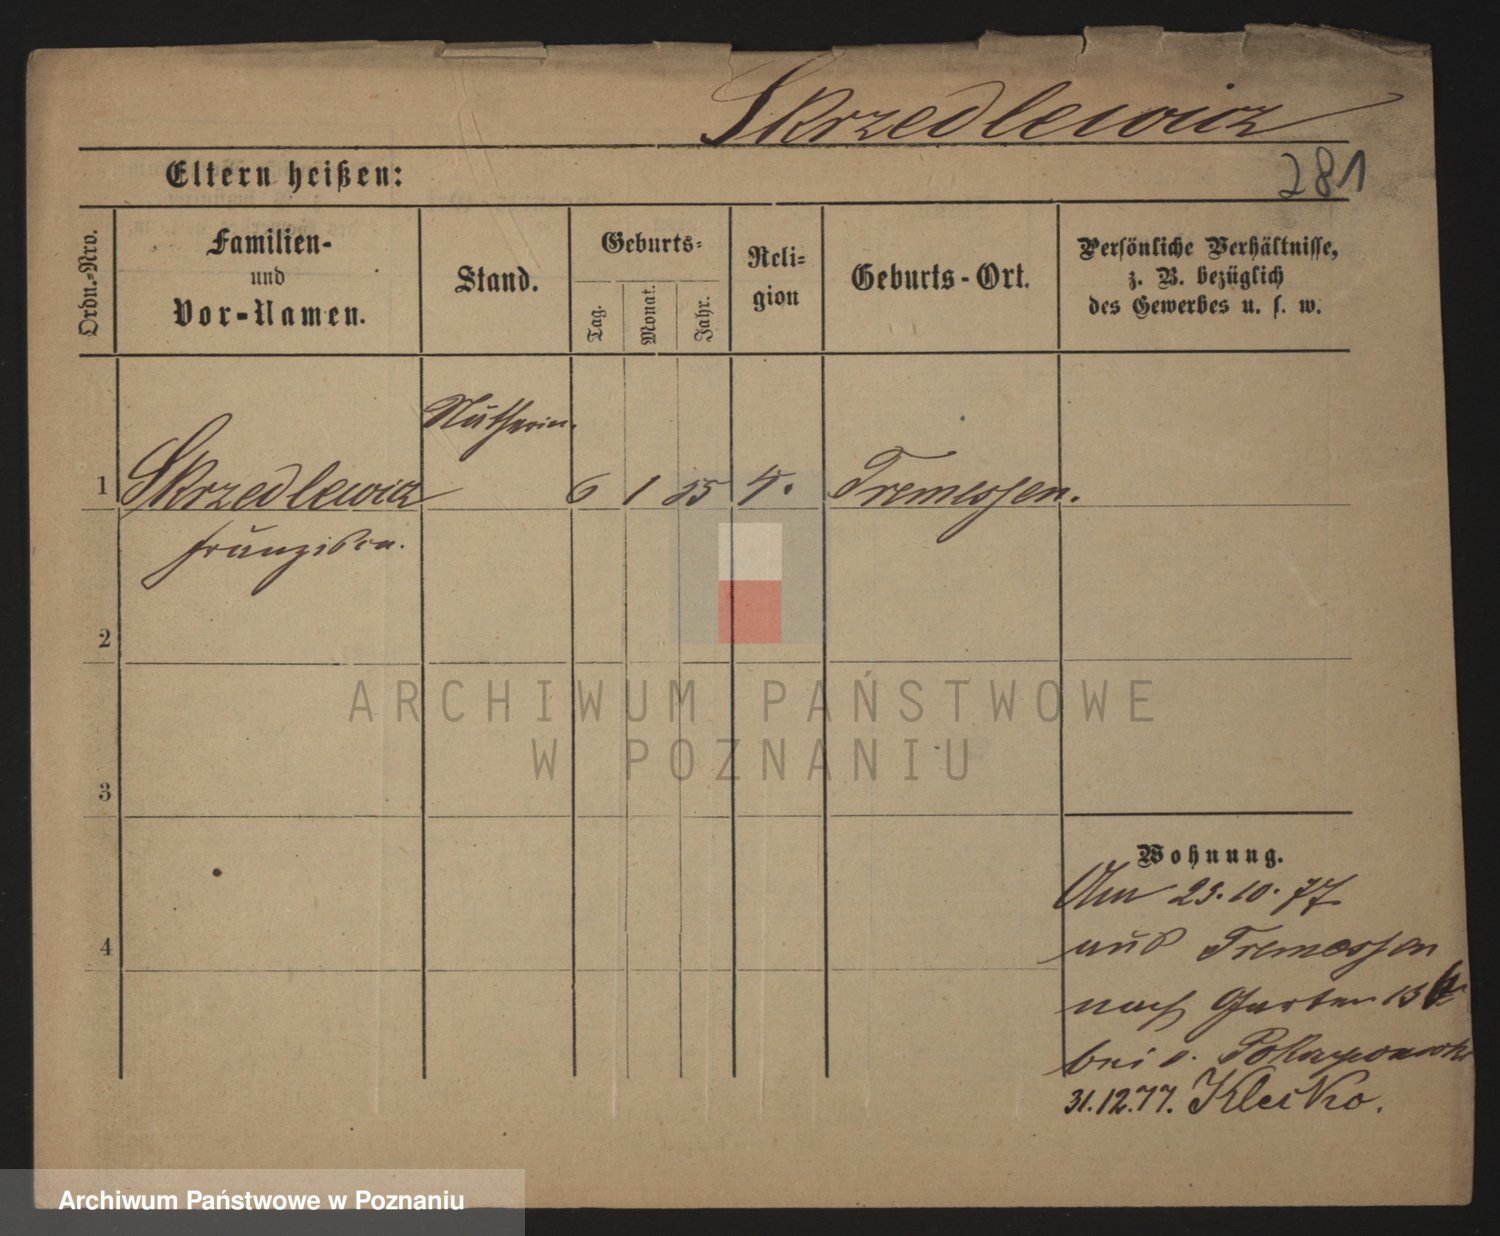 Skrzedlewicz
Eltern heißen:
281
Ordn.-Nro.
Familien-
und
Vor-Namen.
Stand.
Geburts-
Tag.
Monat.
Jahr.
Reli-
gion
Geburts-Ort.
Persönliche Verhältnisse,
z. B. bezüglich
des Gewerbes u. s. w.
Nätherin.
1 Skrzedlewicz 6 1 55 k. Tremessen.
Franziska.
2
ARCHIWUM PAŃSTWOWE
W POZNANIU
3
Wohnung.
Am 23.10.77
4
aus Tremessen
nach Garten 13
bei v.
31.12.77. Klecko.
Archiwum Państwowe w Poznaniu